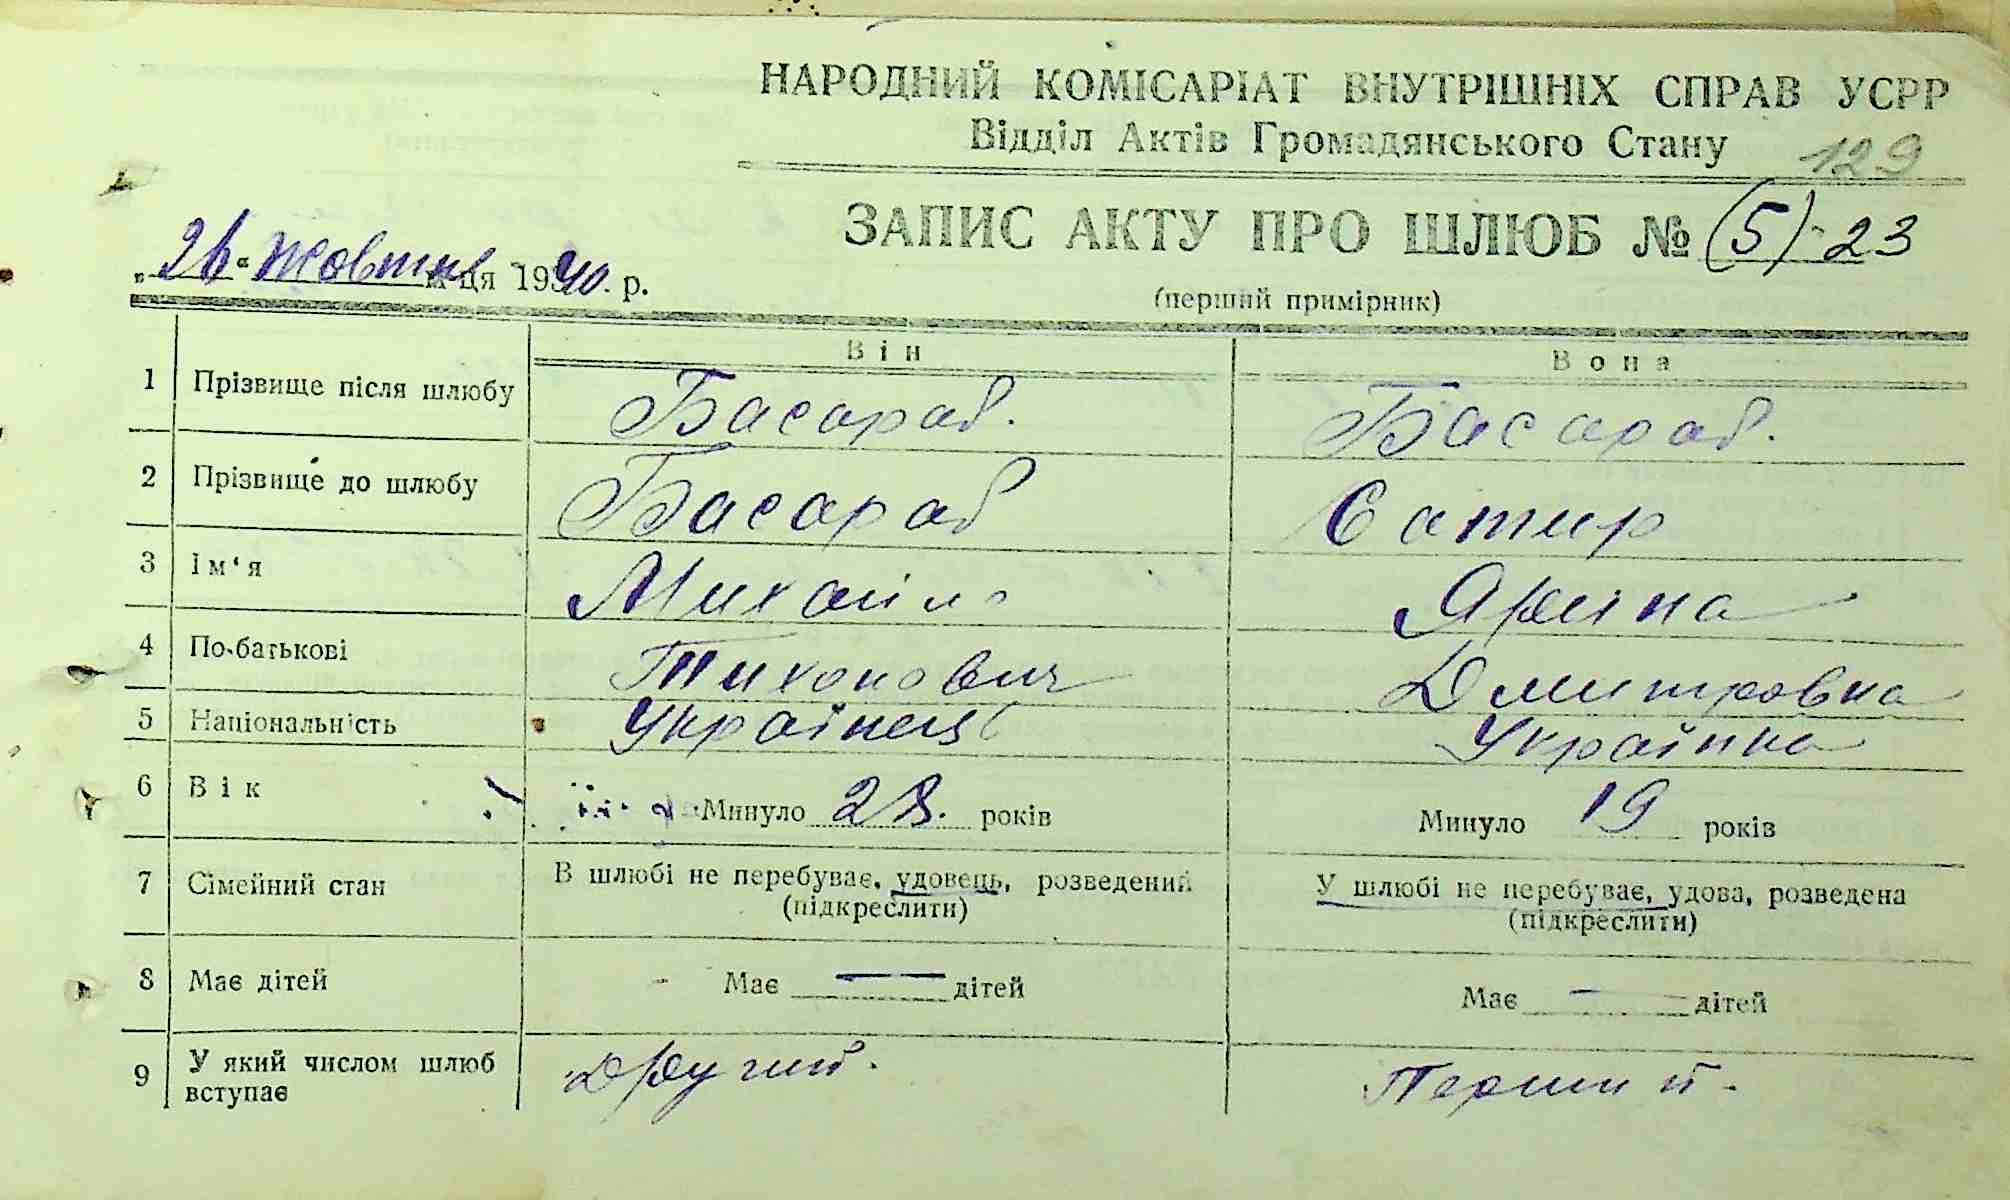 НАРОДНИЙ КОМІСАРІАТ ВНУТРІШНІХ СПРАВ УСРР
Відділ Актів Громадянського Стану 129
ЗАПИС АКТУ ПРО ШЛЮБ № (5)-23
„26“ Жовтня м-ця 1940. р.
(перший примірник)
Він Вона
1 Прізвище після шлюбу Басараб. Басараб.
2 Прізвище до шлюбу Басараб Сатир
3 Ім‘я Михайло Ярина
4 По-батькові Тихонович Дмитровна
5 Національність Українець Українка
6 Вік Минуло 28. років Минуло 19 років
7 Сімейний стан В шлюбі не перебуває, удовець, розведений У шлюбі не перебуває, удова, розведена
(підкреслити) (підкреслити)
8 Має дітей Має — дітей Має — дітей
9 У який числом шлюб вступає Другий. Перший.